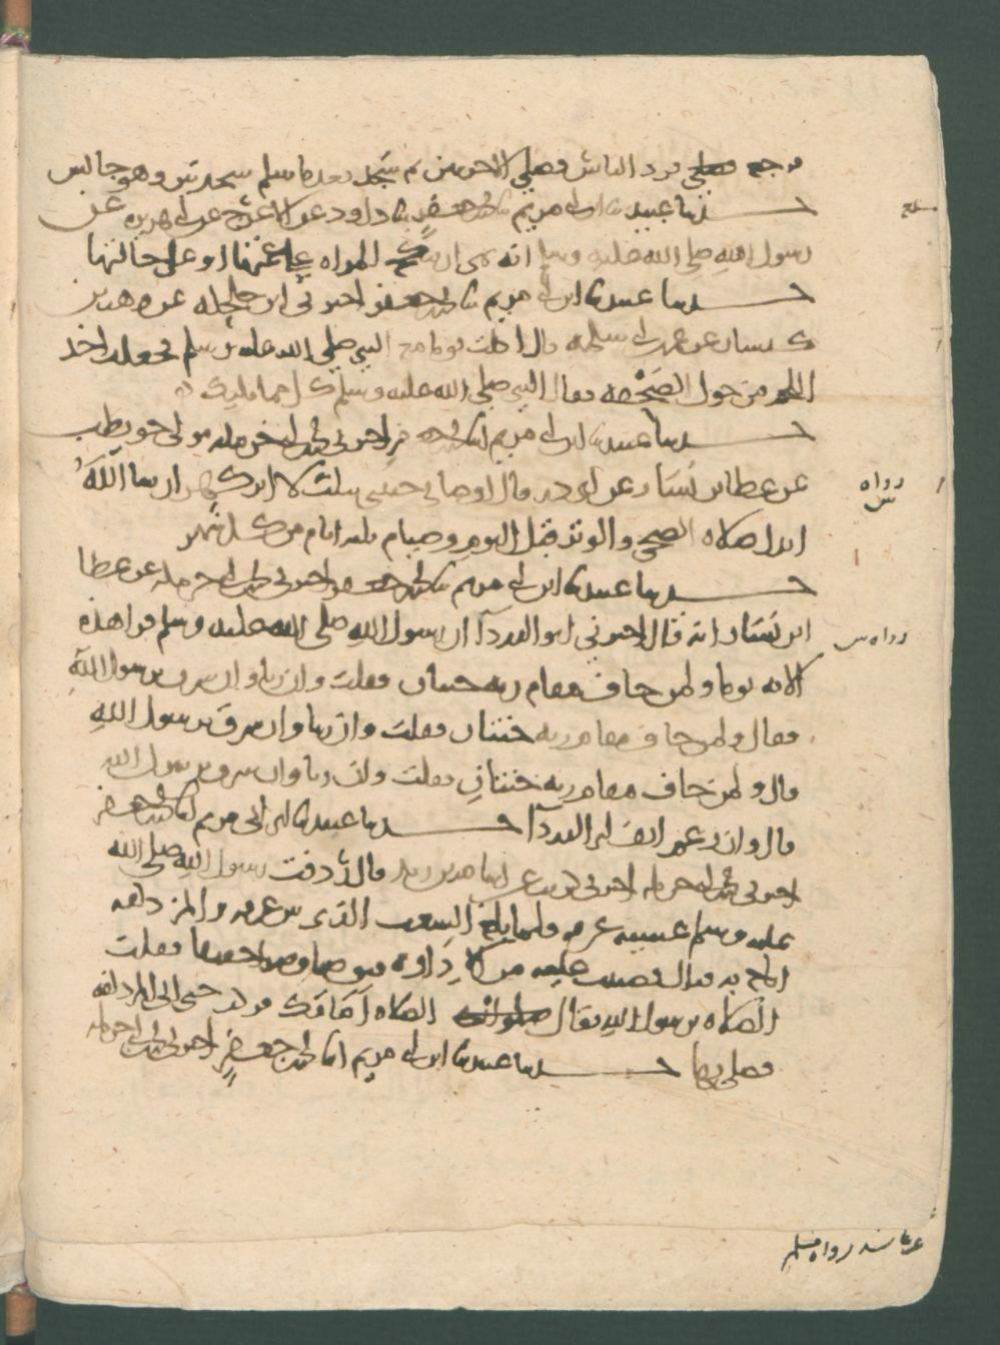 فرجع فرد الناس فصلى الاخرتين ثم سجد بعد ما سلم سجدتين وهو جالس
حدثنا عبيد نا ابن ابي مريم نا محمد بن جعفر نا داود عن الاعرج عن ابي هريره عن
رسول الله صلى الله عليه وسلم انه نهى ان المراه على عمتها او على خالتها
حدثنا عبيد نا ابن ابي مريم نا محمد بن جعفر اخبرني ابن حلحله عن وهب بن
كيسان عن عمر بن ابي سلمه قال اكلت يوما مع النبي صلى الله عليه وسلم فجعلت اخذ
اللحم من حول الصحفه فقال النبي صلى الله عليه وسلم كل مما يليك
حدثنا عبيد نا ابن ابي مريم انا محمد بن جعفر اخبرني محمد بن ابي حرمله مولى حويطب
عن عطا بن يسار عن ابي ذر قال اوصاني حبيبي بثلث لا اتركهن ان شا الله
ابدا صلاه الضحى والوتر قبل النوم وصيام ثلثه ايام من كل شهر
حدثنا عبيد نا ابن ابي مريم نا محمد بن جعفر اخبرني محمد بن ابي حرمله عن عطا
ابن يسار انه قال اخبرني ابو الدردآ ان رسول الله صلى الله عليه وسلم قرا هذه
الايه يوما ولمن خاف مقام ربه جنتان فقلت وان زنا وان سرق يرسول الله
فقال ولمن خاف مقام ربه جنتان فقلت وان زنا وان سرق يرسول الله
قال ولمن خاف مقام ربه جنتان فقلت وان زنا وان سرق يرسول الله
قال وان رغم انف ابي الدردآ حدثنا عبيد نا ابن ابي مريم انا محمد بن جعفر
اخبرني محمد بن ابي حرمله اخبرني كريب عن اسامه بن زيد قال ردفت رسول الله صلى الله
عليه وسلم عشيه عرفه فلما بلغ الشعب الذي بين عرفه والمزدلفه
اناخ به فبال فصببت عليه من الاداوه فتوضا وضوا خفيفا فقلت
الصلاه يرسول الله فقال الصلاه امامك فركب حتى اتى المزدلفه
فصلى بها حدثنا عبيد نا ابن ابي مريم انا محمد بن جعفر اخبرني محمد بن ابي حرمله
رواه
س
رواه س
رواه مسلم